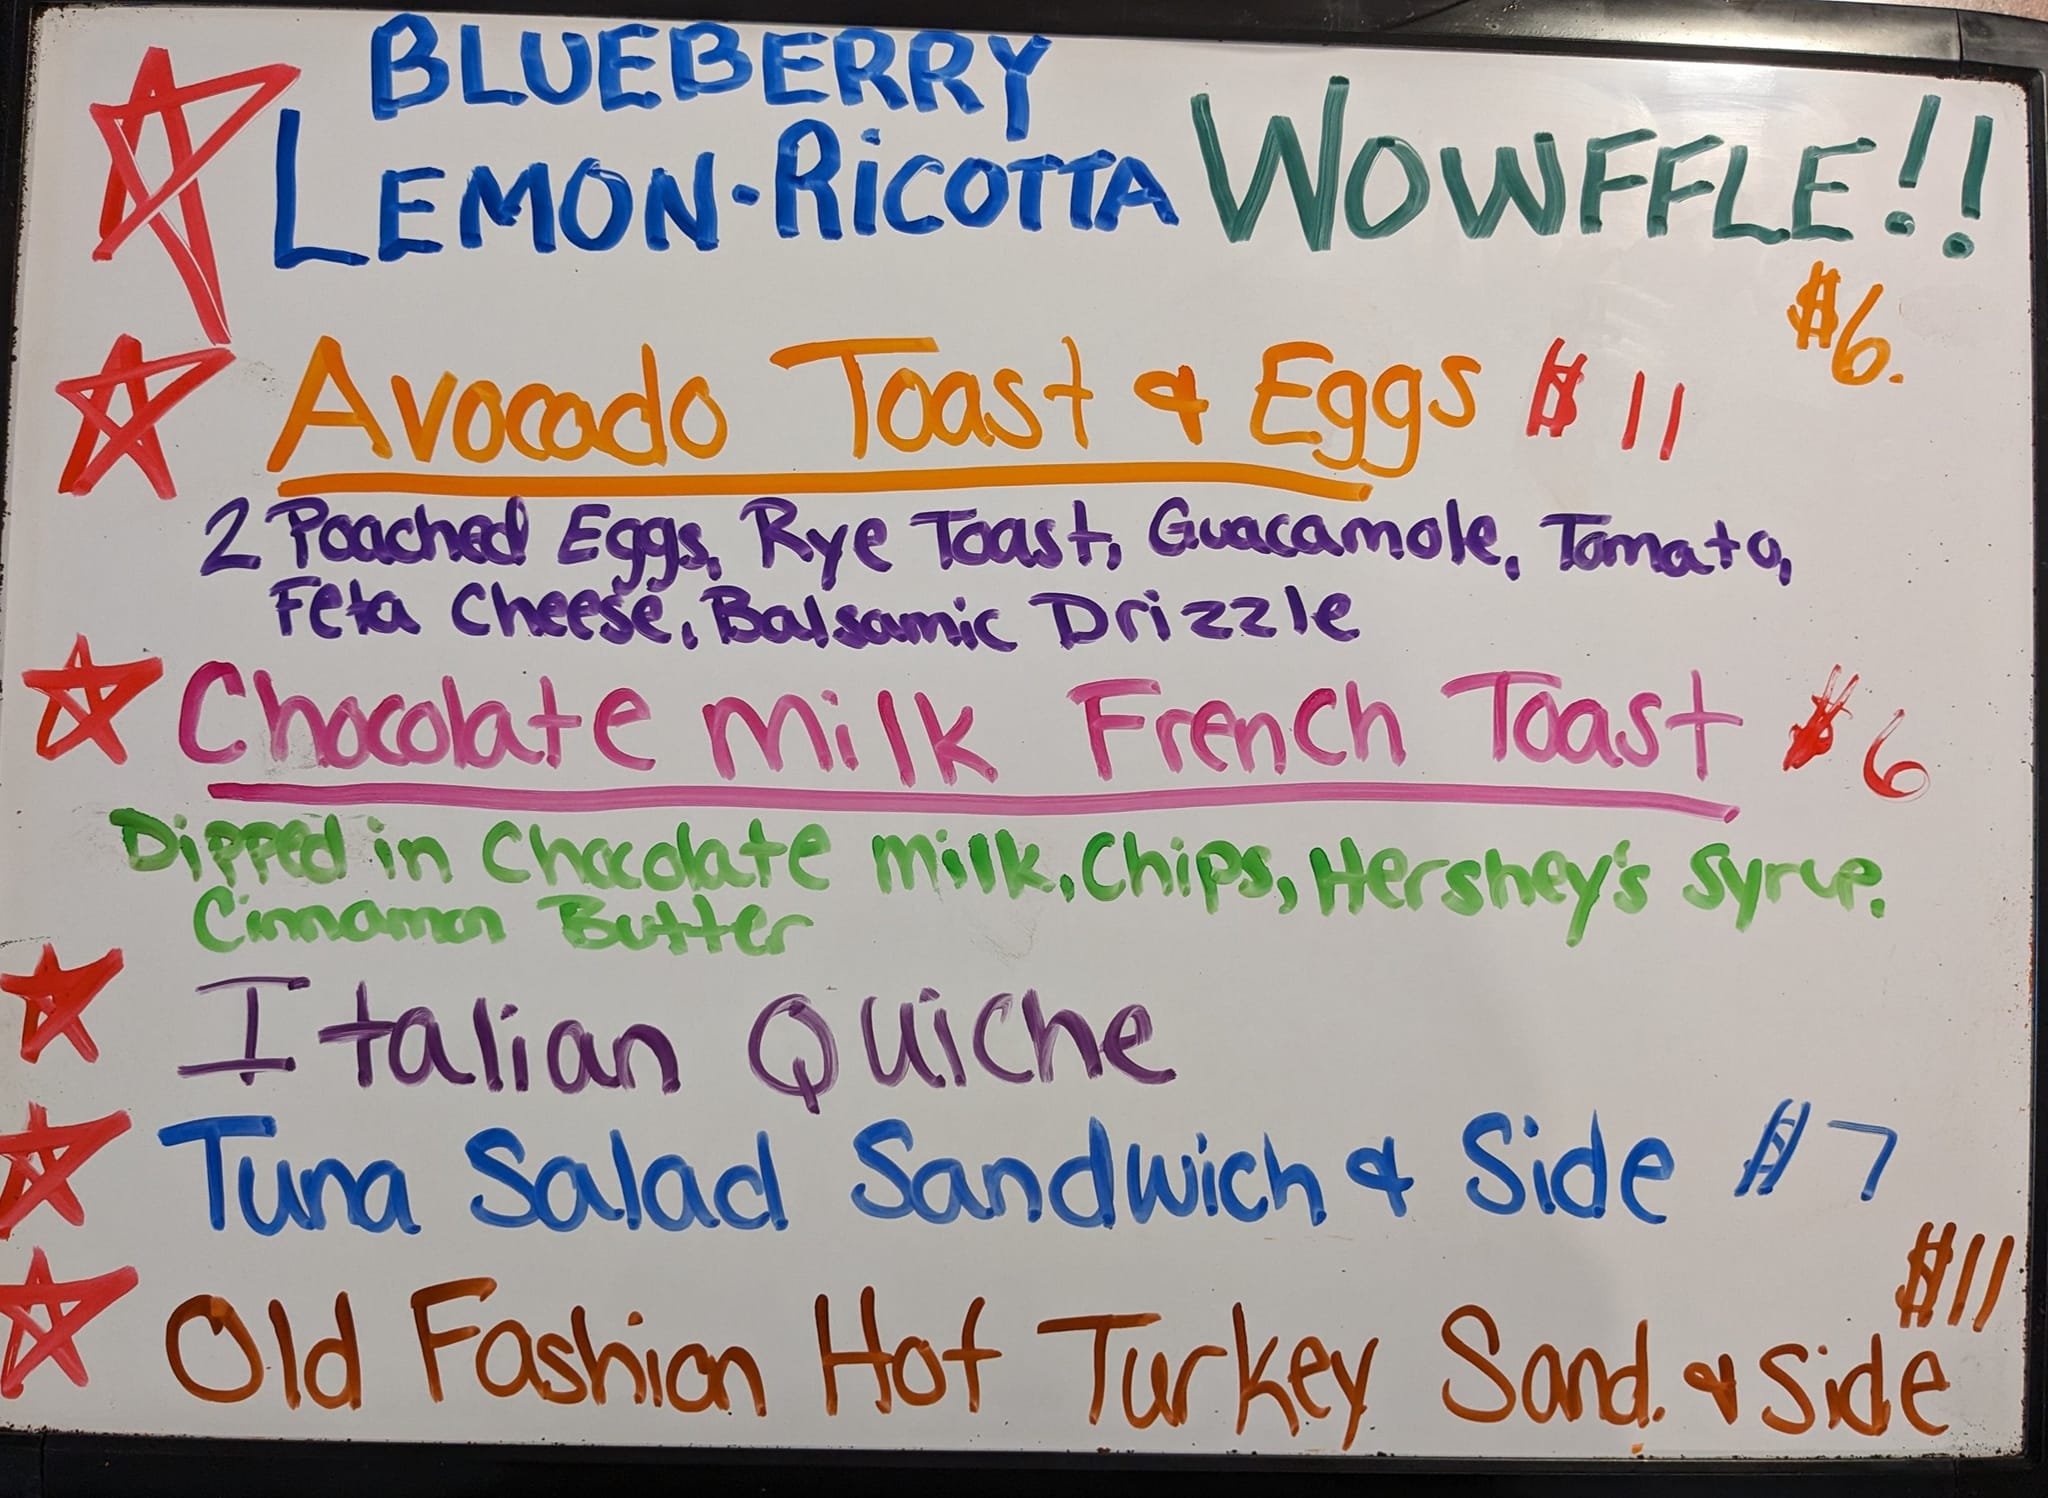 BLUEBERRY
LEMON-RICOTTA WOWFFLE!!
$6.
Avocado Toast & Eggs $11
2 Poached Eggs, Rye Toast, Guacamole, Tomato,
Feta Cheese, Balsamic Drizzle
Chocolate Milk French Toast $6
Dipped in Chocolate Milk, Chips, Hershey's Syrup.
Cinnamon Butter
Italian Quiche
Tuna Salad Sandwich & Side $7
$11
Old Fashion Hot Turkey Sand. & Side